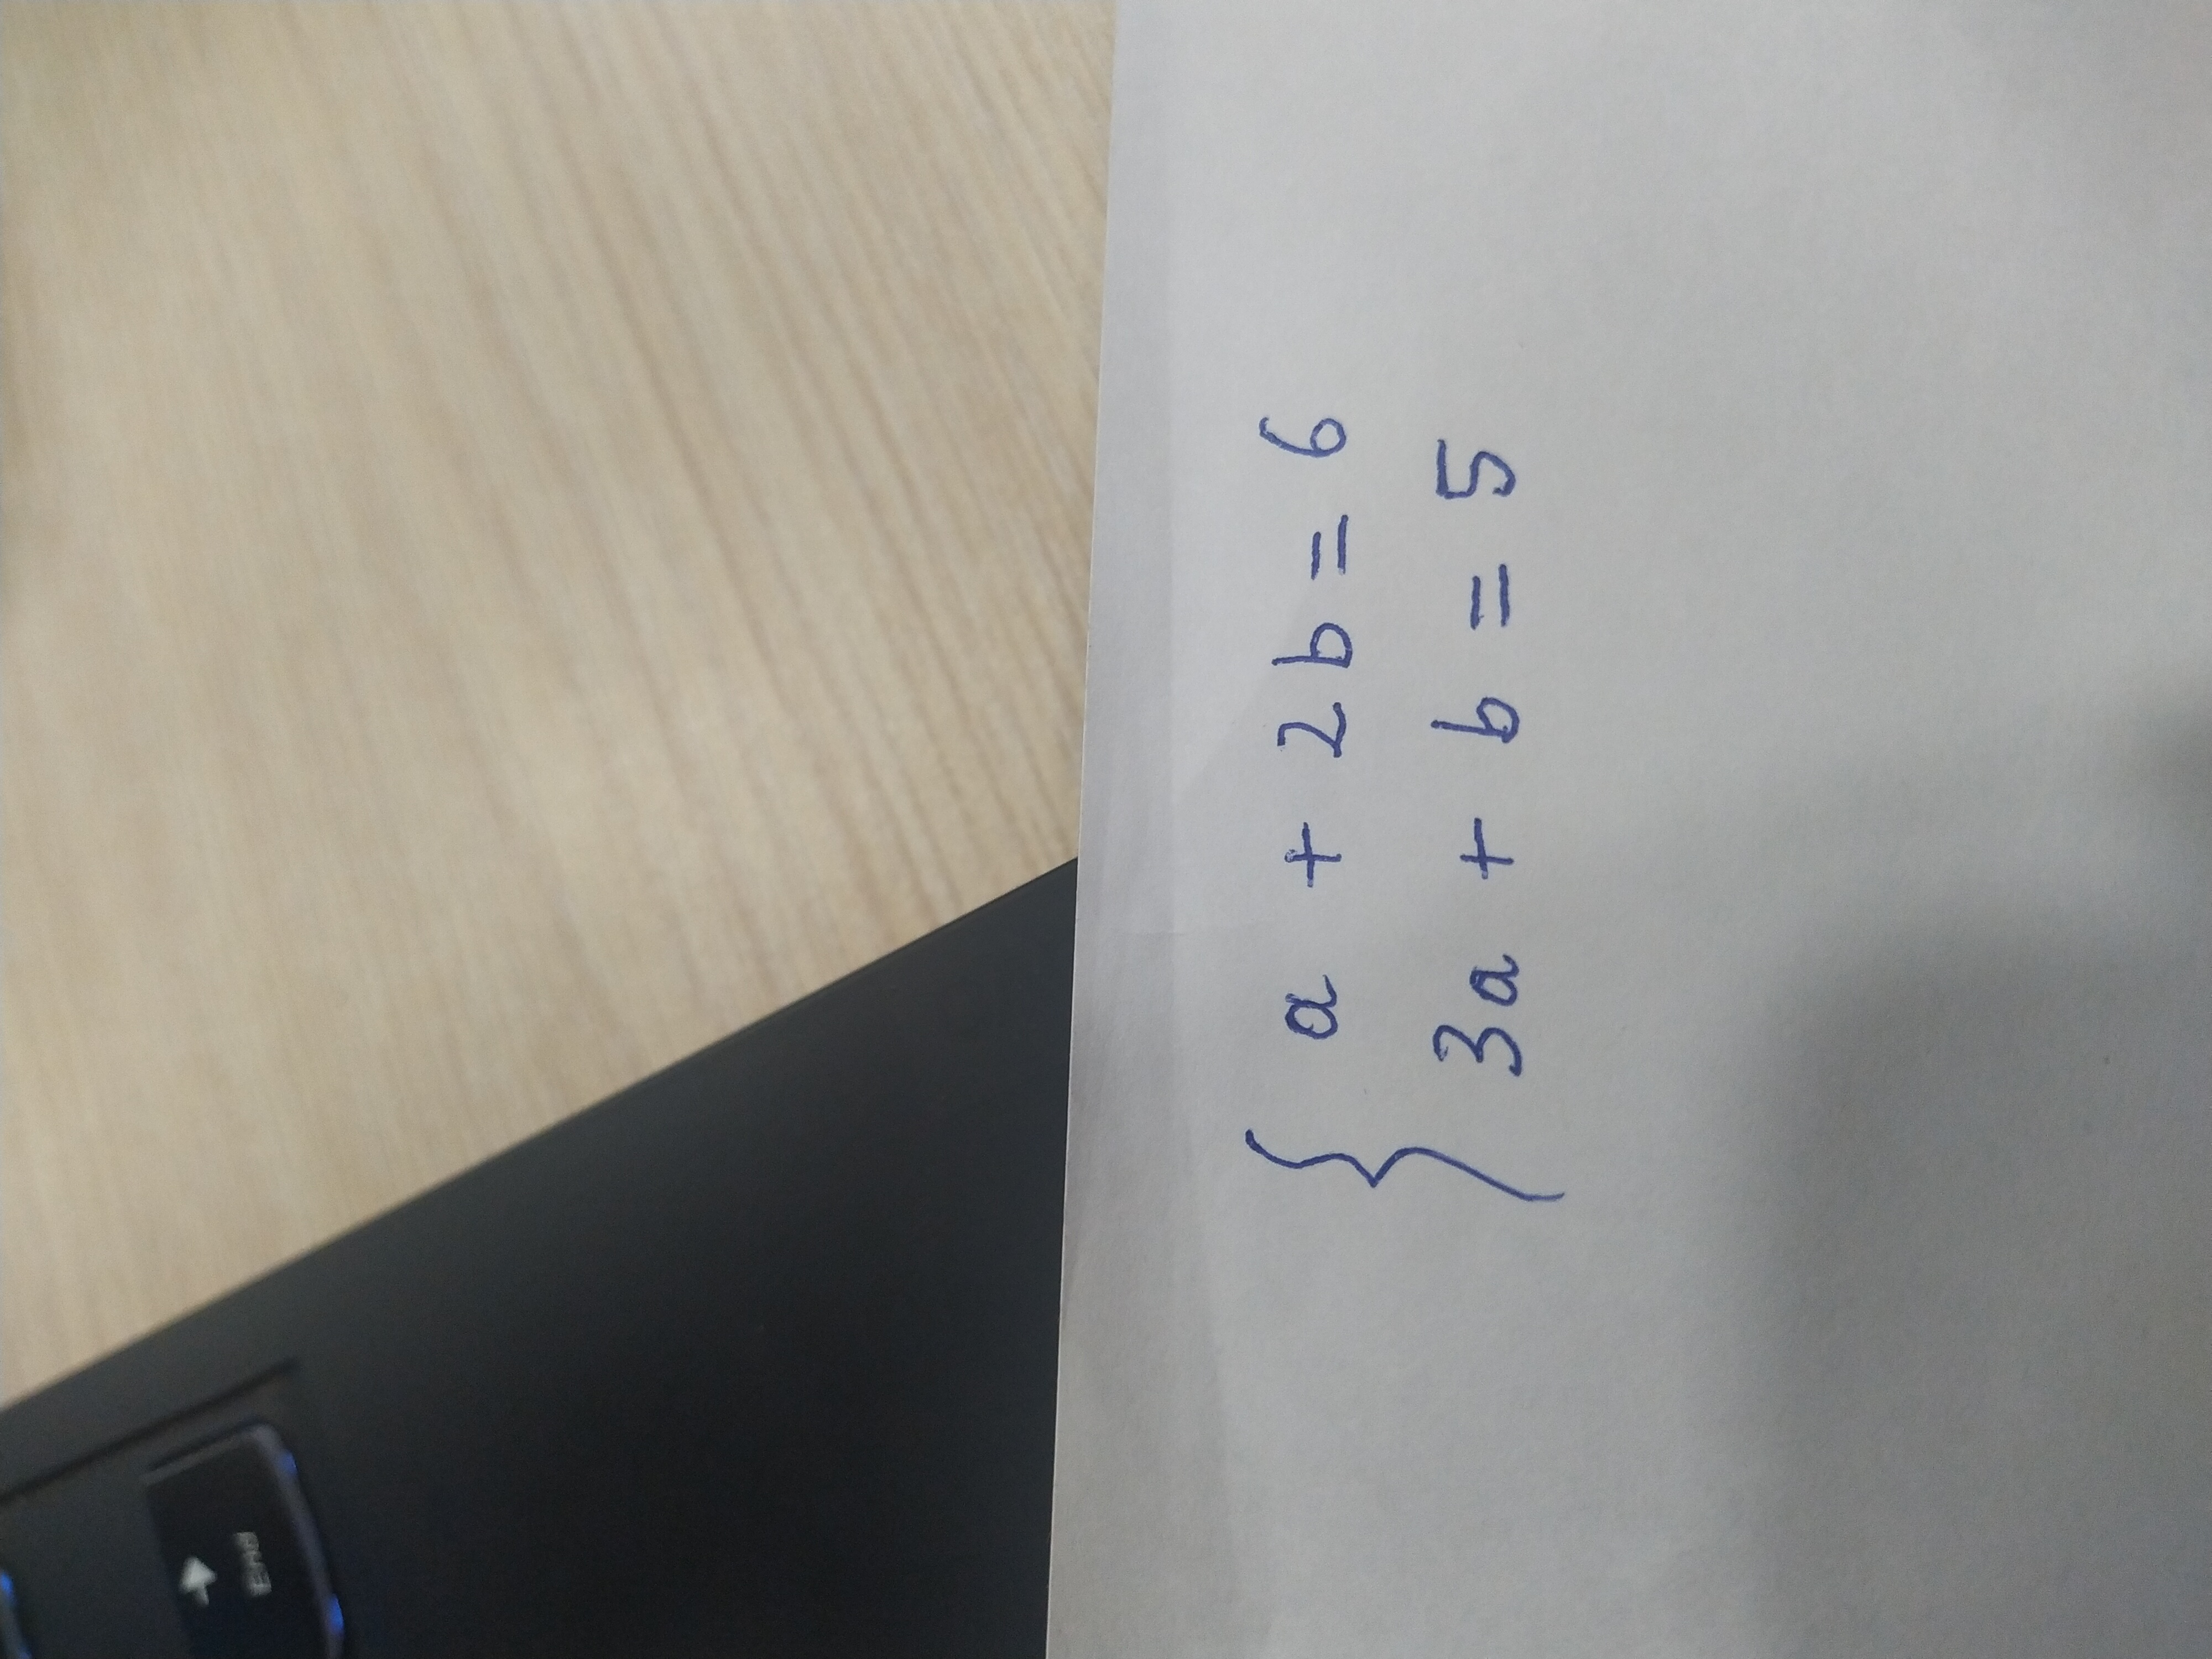 →
End
a + 2b = 6
3a + b = 5